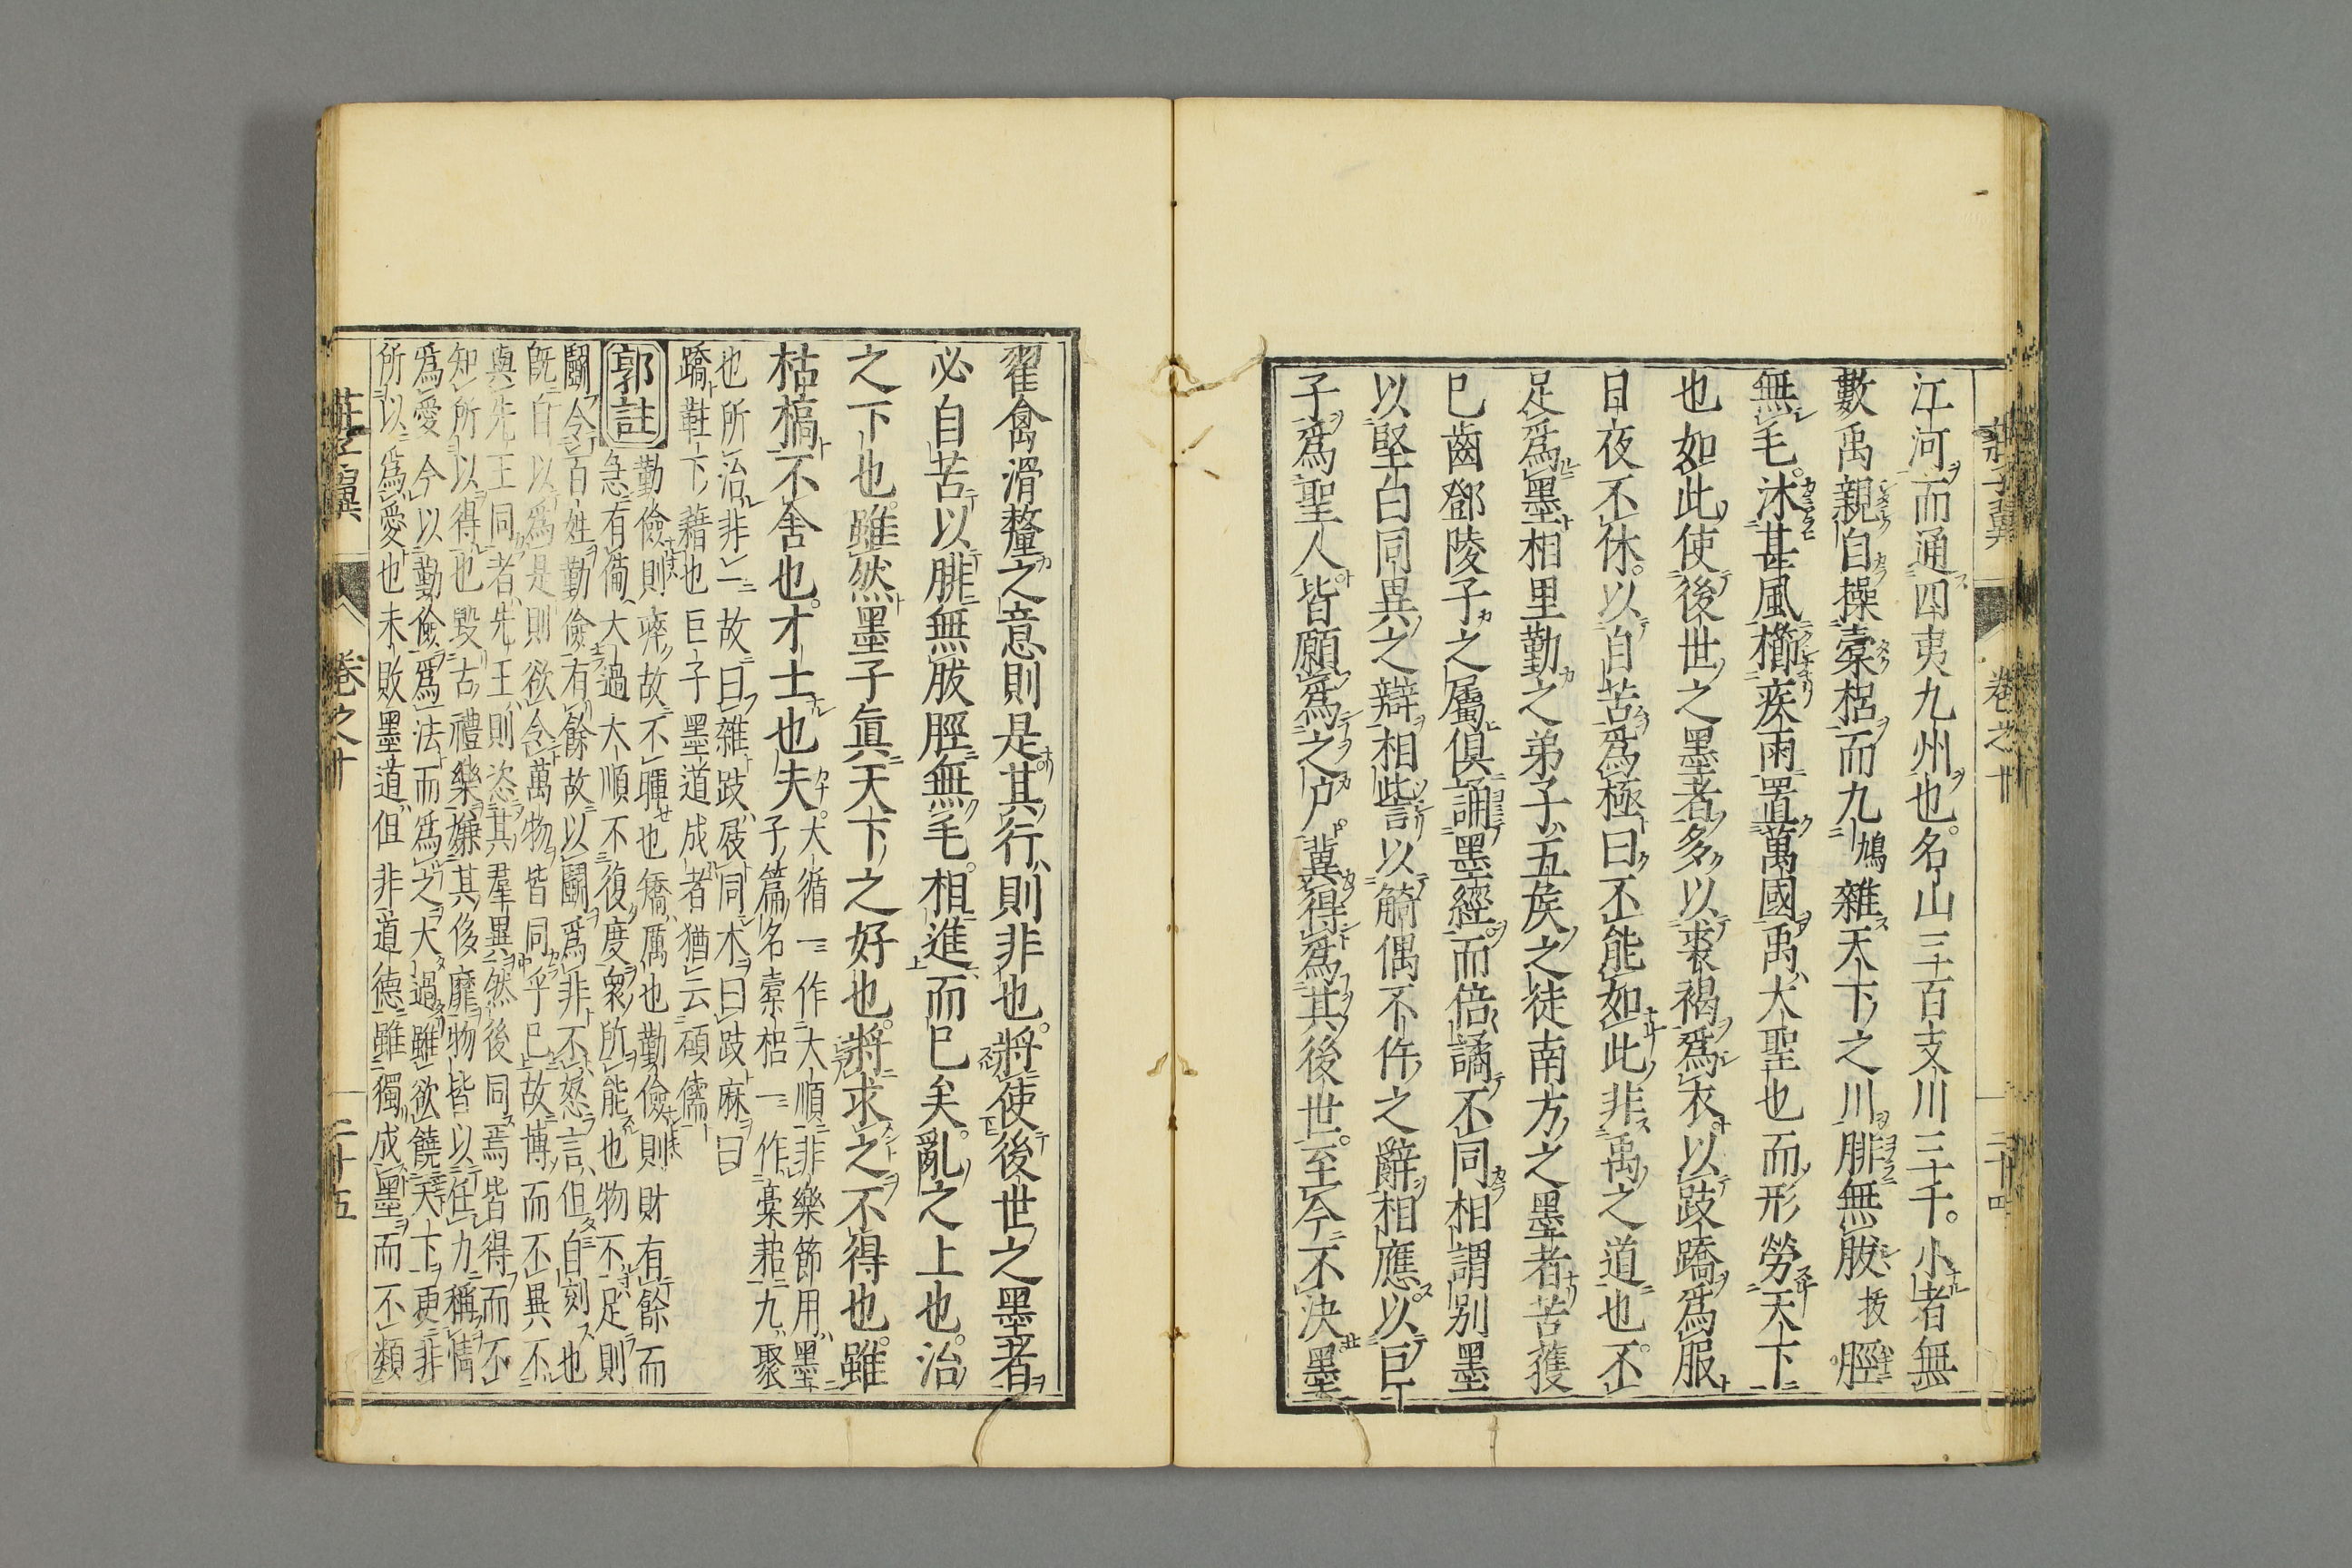 江河而通四夷九州也名山三百支川三千小者無
數禹親自操橐梠而九鳩雜天下之川腓無胈拔脛
無毛沐甚風櫛疾雨置萬國禹大聖也而形勞天下
也如此使後世之墨者多以裘褐爲衣以跂蹻爲服
日夜不休以自苦爲極曰不能如此非禹之道也不
足爲墨相里勤之弟子五矦之徒南方之墨者苦獲
已齒鄧陵子之屬俱誦墨經而倍譎不同相謂別墨
以堅白同異之辯相訾以觭偶不仵之辭相應以巨
子爲聖人皆願爲之尸冀得爲其後世至今不決墨
莊子翼 卷之十 二十四
翟禽滑釐之意則是其行則非也將使後世之墨者
必自苦以腓無胈脛無毛相進而已矣亂之上也治
之下也雖然墨子眞天下之好也將求之不得也雖
枯槁不舍也才士也夫
大循一作大順非樂節用墨
子篇名橐梠一作橐耜九聚
也所治非一故曰雜跂屐同木曰跂麻曰
蹻鞋下藉也巨子墨道成者猶云碩儒
郭註
勤儉則瘁故不暉也矯厲也勤儉則財有餘而
急有備大過大順不復度衆所能也物不足則
鬭令百姓勤儉有餘故以鬭爲非不怒言但自刻也
旣自以爲是則欲令萬物皆同乎已故博而不異不
與先王同者先王則恣其羣異然後同焉皆得而不
知所以得也毀古禮樂嫌其侈靡物皆以任力稱情
爲愛今以勤儉爲法而爲之大過雖欲饒天下更非
所以爲愛也未敗墨道但非道德雖獨成墨而不類
莊子翼 卷之十 二十五